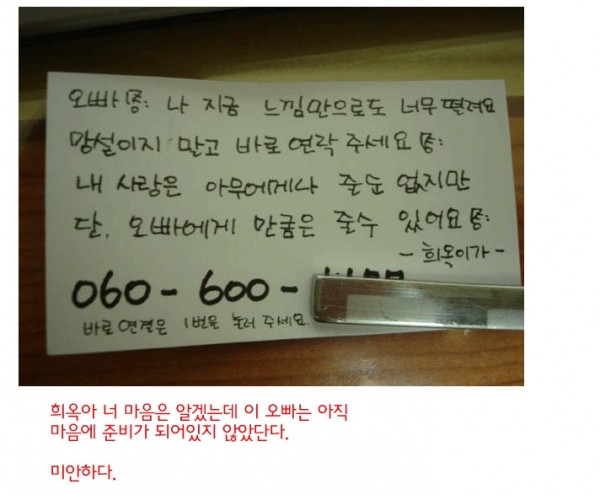 오빠 ㅎㅎ: 나 지금 느낌만으로도 너무 떨려요
망설이지 말고 바로 연락 주세요
내 사랑은 아무에게나 줄순 없지만
단, 오빠에게 만굼은 줄수 있어요
- 희옥이가 -
060 - 600 -
바로연결은 1번을 눌러 주세요.
희옥아 너 마음은 알겠는데 이 오빠는 아직
마음에 준비가 되어있지 않았단다.
미안하다.